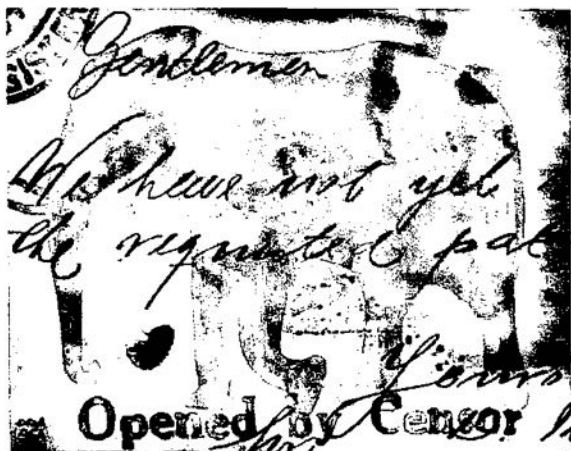 Gentlemen
We have not yet
the requested pat
Yours
Opened by Censor